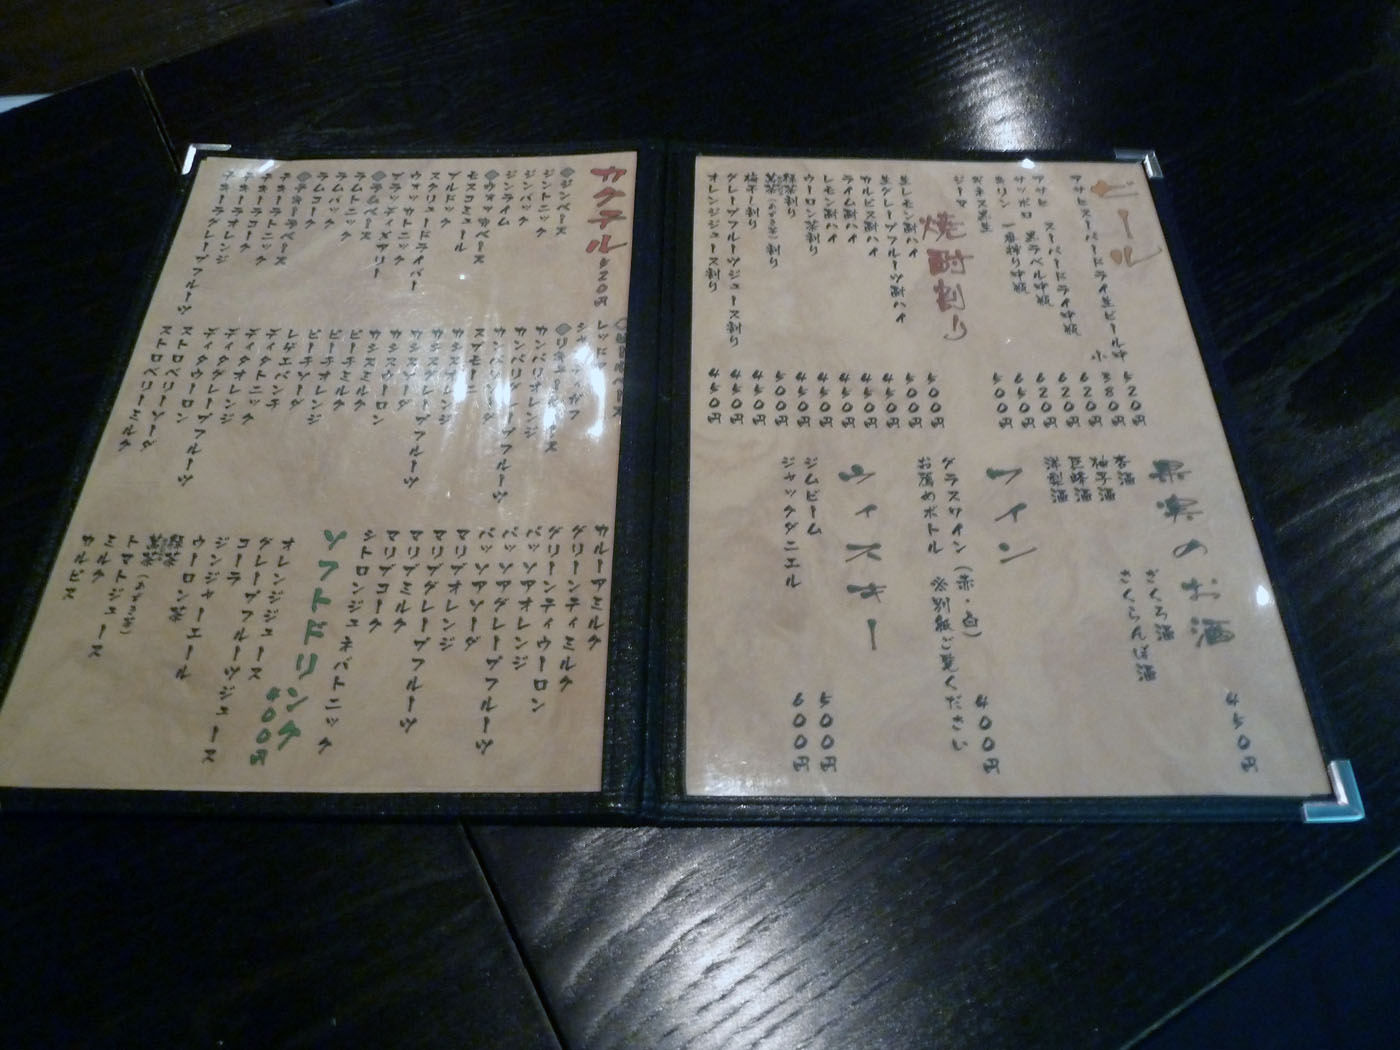 ビール
アサヒスーパードライ生ビール中 520円
小 380円
アサヒ スーパードライ中瓶 620円
サッポロ 黒ラベル中瓶 620円
キリン 一番搾り中瓶 650円
500円
焼酎割り
生レモン酎ハイ 500円
生グレープフルーツ酎ハイ 500円
カルピス酎ハイ 450円
ライム酎ハイ 450円
レモン酎ハイ 450円
ウーロン茶割り 450円
緑茶割り
梅干し割り 450円
グレープフルーツジュース割り 450円
オレンジジュース割り 450円
果実のお酒 450円
杏酒
ざくろ酒
さくらんぼ酒
ワイン
グラスワイン (赤・白) 400円
お薦めボトル ※別紙ご覧ください
ウィスキー
ジムビーム 500円
ジャックダニエル 600円
カクテル 520円
ジンベース
ジントニック
ジンバック
ジンライム
ウォッカベース
モスコミュール
ブルドック
スクリュードライバー
ウォッカトニック
ブラッディメアリー
ラムベース
ラムトニック
ラムバック
ラムコーク
テキーラベース
テキーラトニック
テキーラコーク
テキーラオレンジ
テキーラグレープフルーツ
カンパリオレンジ
カンパリソーダ
カンパリグレープフルーツ
スプモーニ
カシスソーダ
カシスオレンジ
カシスグレープフルーツ
カシスウーロン
カシスミルク
ピーチミルク
ピーチオレンジ
ピーチソーダ
レゲエパンチ
ディタトニック
ディタオレンジ
ディタグレープフルーツ
ディタウーロン
ストロベリーソーダ
ストロベリーミルク
カルーアミルク
グリーンティミルク
グリーンティウーロン
パッソアオレンジ
パッソアソーダ
パッソアグレープフルーツ
マリブオレンジ
マリブグレープフルーツ
マリブミルク
マリブコーク
シトロンジュネバトニック
ソフトドリンク 400円
オレンジジュース
グレープフルーツジュース
コーラ
ジンジャーエール
ウーロン茶
緑茶
トマトジュース
ミルク
カルピス